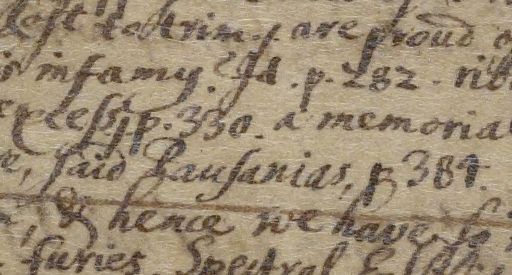 doctrin, are proud
infamy. Id. p. 282.
p. 330. a memorial
said Pausanias, p 381.
& hence we have
furies, Spectral